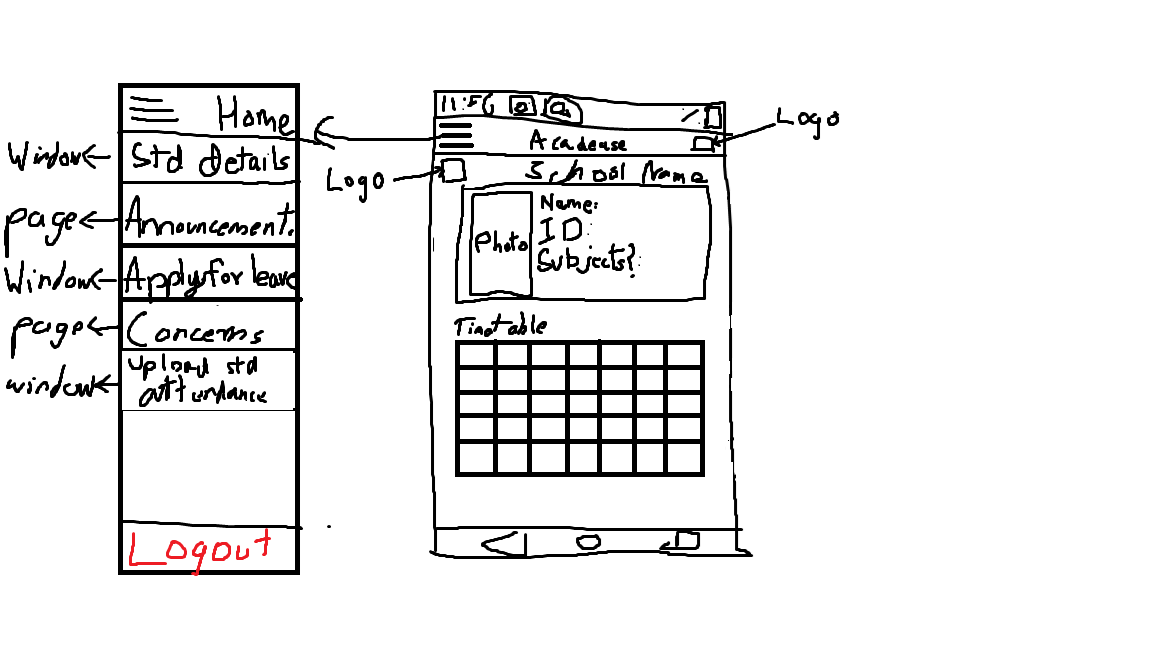 Home
Window
Std details
page
Announcement.
Window
Apply for leave
page
Concerns
window
Upload std
attendance
Logout
11:56
Acadease
Logo
Logo
School Name
Photo
Name:
ID:
Subjects:
Timetable